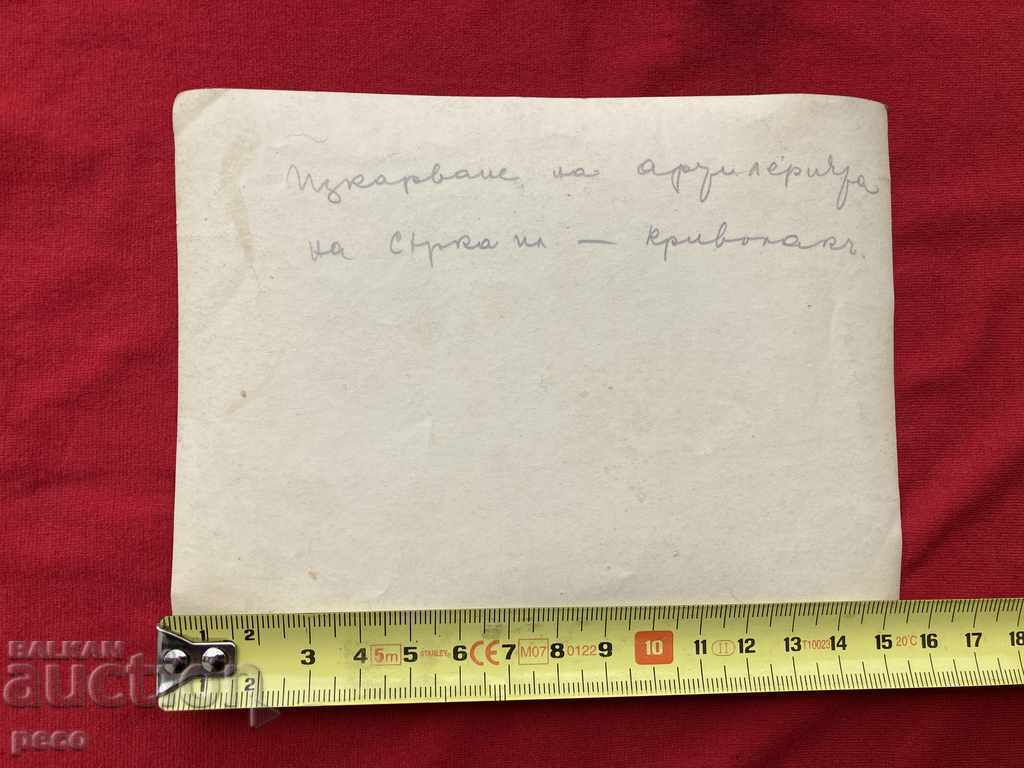 Изкарване на артилерията
на Сърка пл — Криволакъ.
1 2 3 4 5m 5 STANLEY 6 CE 7 M07 8 0122 9 10 11 II 12 13 T10023 14 15 20°C 16 17 18
2
BALKAN
auction
peco